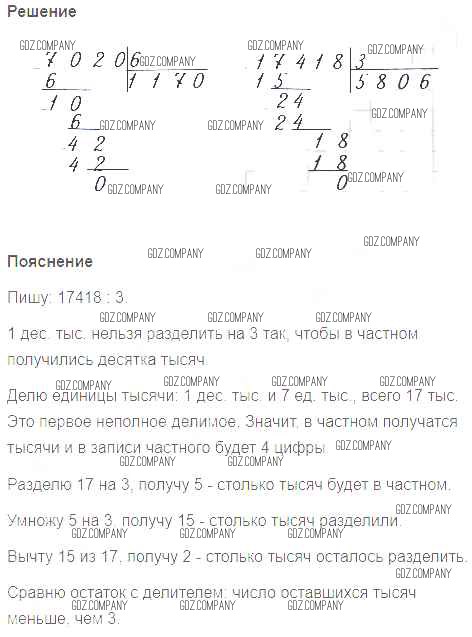 Решение
GDZ.COMPANY GDZ.COMPANY GDZ.COMPANY
7 0 2 0 6 GDZ.COMPANY 1 7 4 1 8 3
6 1 1 7 0 1 5 5 8 0 6
1 0 2 4
6 GDZ.COMPANY GDZ.COMPANY 2 4 GDZ.COMPANY
4 2 1 8
4 2 1 8
0 GDZ.COMPANY GDZ.COMPANY 0 GDZ.COMPANY
GDZ.COMPANY
Пояснение GDZ.COMPANY GDZ.COMPANY
Пишу: 17418 : 3.
GDZ.COMPANY GDZ.COMPANY GDZ.COMPANY
1 дес. тыс. нельзя разделить на 3 так, чтобы в частном
получились десятка тысяч.
GDZ.COMPANY GDZ.COMPANY GDZ.COMPANY GDZ.COMPANY
Делю единицы тысячи: 1 дес. тыс. и 7 ед. тыс., всего 17 тыс.
Это первое неполное делимое. Значит, в частном получатся
тысячи и в записи частного будет 4 цифры. GDZ.COMPANY
GDZ.COMPANY GDZ.COMPANY
Разделю 17 на 3, получу 5 - столько тысяч будет в частном.
GDZ.COMPANY
Умножу 5 на 3, получу 15 - столько тысяч разделили.
GDZ.COMPANY GDZ.COMPANY GDZ.COMPANY
Вычту 15 из 17, получу 2 - столько тысяч осталось разделить.
GDZ.COMPANY
Сравню остаток с делителем: число оставшихся тысяч
GDZ.COMPANY GDZ.COMPANY GDZ.COMPANY
меньше, чем 3.